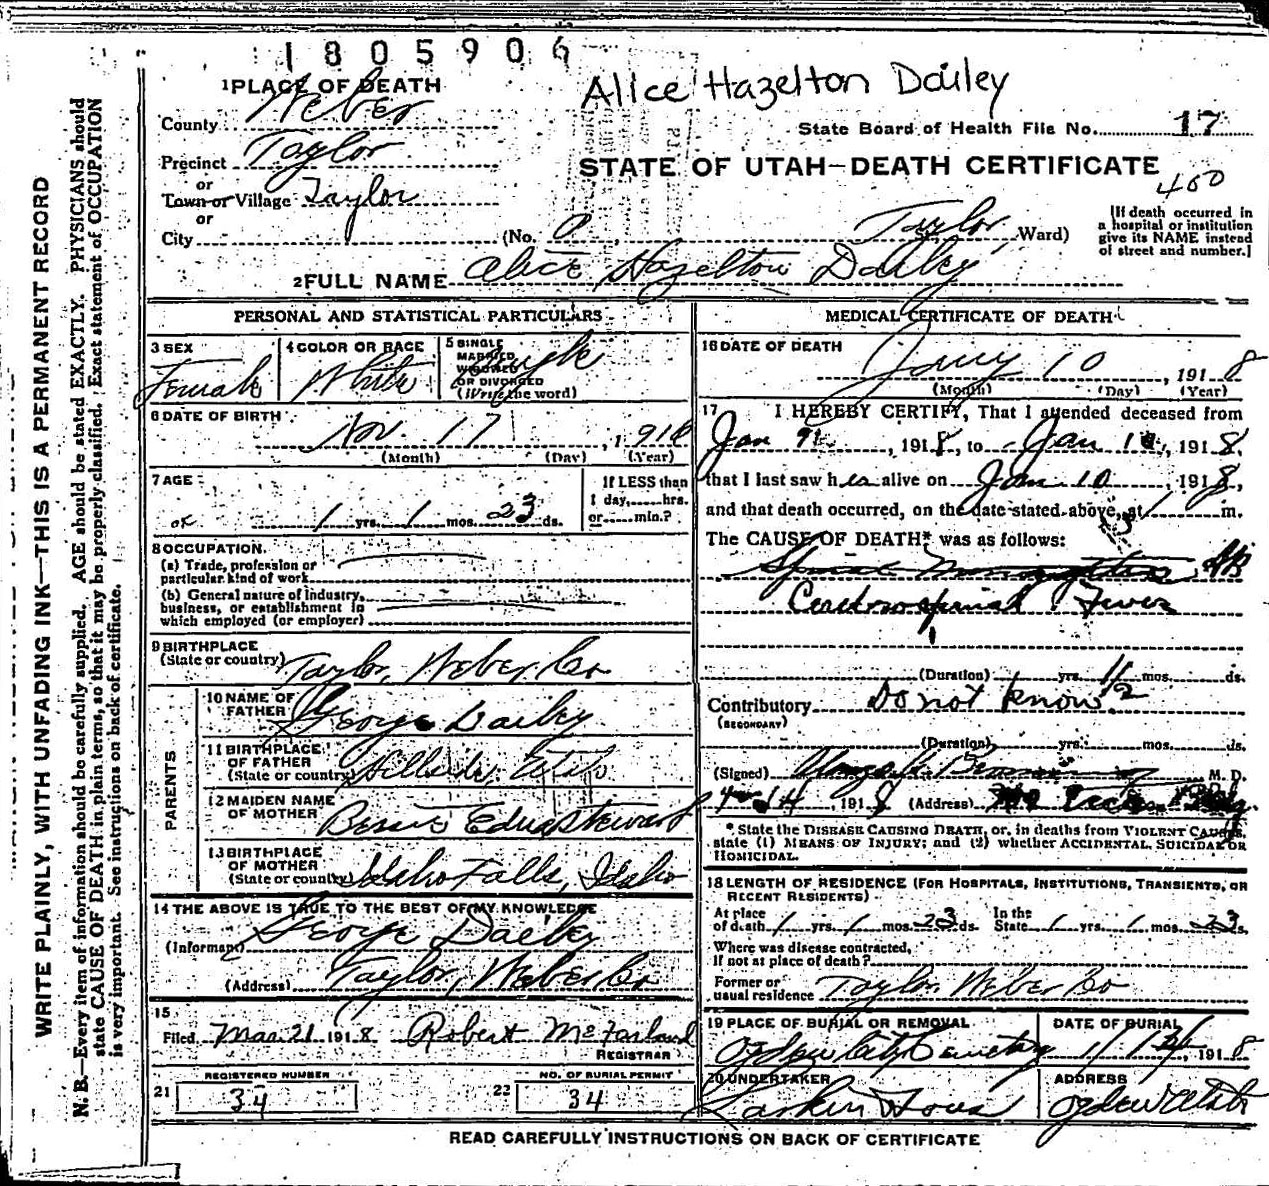 1805906
Alice Hazelton Dailey
1 PLACE OF DEATH
County Weber
State Board of Health File No. 17
Precinct Taylor
STATE OF UTAH—DEATH CERTIFICATE
400
or
Town or Village Taylor
or
City (No. 0, Taylor Ward)
[If death occurred in a hospital or institution give its NAME instead of street and number.]
2 FULL NAME Alice Hazelton Dailey
PERSONAL AND STATISTICAL PARTICULARS
3 SEX Female
4 COLOR OR RACE White
5 SINGLE MARRIED WIDOWED OR DIVORCED (Write the word) Single
6 DATE OF BIRTH
Nov. 17, 1916
(Month) (Day) (Year)
7 AGE
1 yrs. 1 mos. 23 ds.
If LESS than 1 day, hrs. or min.?
8 OCCUPATION.
(a) Trade, profession or particular kind of work
(b) General nature of industry, business, or establishment in which employed (or employer)
9 BIRTHPLACE (State or country) Taylor, Weber Co
PARENTS
10 NAME OF FATHER George Dailey
11 BIRTHPLACE OF FATHER (State or country) Hillside,
12 MAIDEN NAME OF MOTHER Bessie Edna Stewart
13 BIRTHPLACE OF MOTHER (State or country) Idaho Falls, Idaho
14 THE ABOVE IS TRUE TO THE BEST OF MY KNOWLEDGE
(Informant) George Dailey
(Address) Taylor, Weber Co
15
Filed Mar. 21 1918 Robert McFarland
REGISTRAR
21 REGISTERED NUMBER 34
22 NO. OF BURIAL PERMIT 34
MEDICAL CERTIFICATE OF DEATH
16 DATE OF DEATH
Jany 10, 1918
(Month) (Day) (Year)
17 I HEREBY CERTIFY, That I attended deceased from
Jan 9, 1918, to Jan 10, 1918,
that I last saw her alive on Jan 10, 1918,
and that death occurred, on the date stated above, at 1 m.
The CAUSE OF DEATH* was as follows:
Spinal Meningitis
Cerebrospinal Fever
(Duration) yrs. mos. ds.
Contributory Do not know
(SECONDARY)
(Duration) yrs. mos. ds.
(Signed) M. D.
14, 1918 (Address)
* State the DISEASE CAUSING DEATH, or, in deaths from VIOLENT CAUSES, state (1) MEANS OF INJURY; and (2) whether ACCIDENTAL, SUICIDAL OR HOMICIDAL.
18 LENGTH OF RESIDENCE (FOR HOSPITALS, INSTITUTIONS, TRANSIENTS, OR RECENT RESIDENTS)
At place of death 1 yrs. 1 mos. 23 ds. In the State 1 yrs. 1 mos. 23 ds.
Where was disease contracted, If not at place of death?
Former or usual residence Taylor Weber Co
19 PLACE OF BURIAL OR REMOVAL Ogden City Cemetery
DATE OF BURIAL 1/12, 1918
20 UNDERTAKER Larkin & Sons
ADDRESS Ogden Utah
READ CAREFULLY INSTRUCTIONS ON BACK OF CERTIFICATE
WRITE PLAINLY, WITH UNFADING INK—THIS IS A PERMANENT RECORD
N. B.—Every item of information should be carefully supplied. AGE should be stated EXACTLY. PHYSICIANS should
state CAUSE OF DEATH in plain terms, so that it may be properly classified. Exact statement of OCCUPATION
is very important. See instructions on back of certificate.